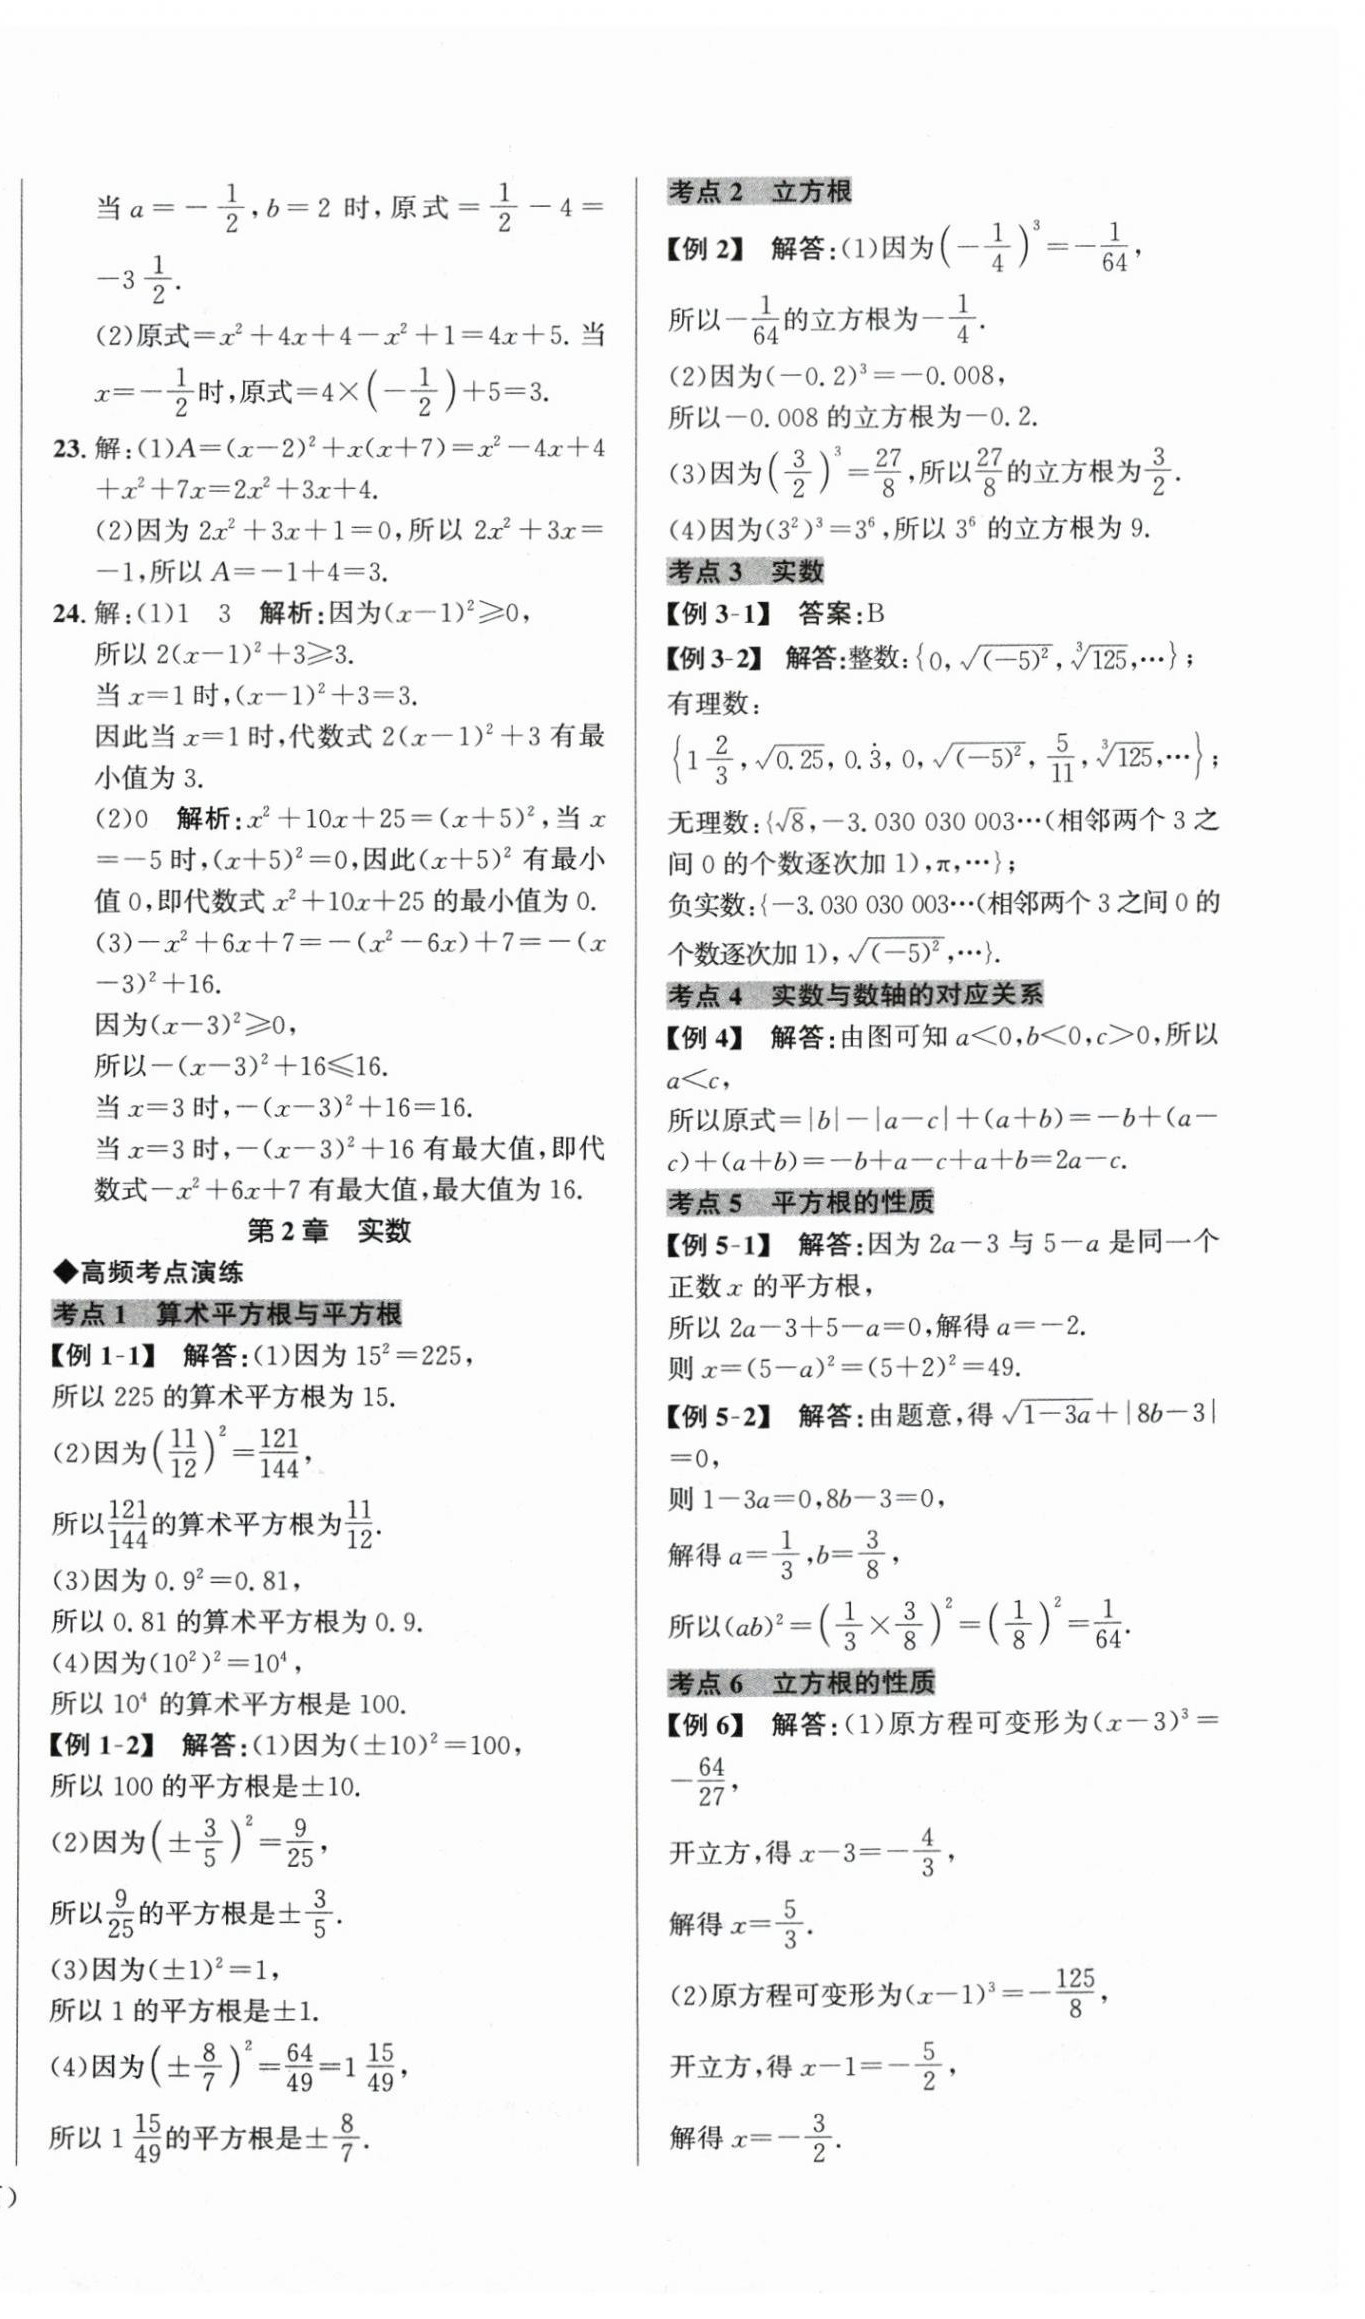 当 a=-1/2,b=2 时,原式=1/2-4=
-3 1/2.
(2)原式=x²+4x+4-x²+1=4x+5. 当
x=-1/2时,原式=4×(-1/2)+5=3.
23. 解:(1)A=(x-2)²+x(x+7)=x²-4x+4
+x²+7x=2x²+3x+4.
(2)因为 2x²+3x+1=0,所以 2x²+3x=
-1,所以 A=-1+4=3.
24. 解:(1)1　3　解析:因为(x-1)²≥0,
所以 2(x-1)²+3≥3.
当 x=1 时,(x-1)²+3=3.
因此当 x=1 时,代数式 2(x-1)²+3 有最
小值为 3.
(2)0　解析:x²+10x+25=(x+5)²,当 x
=-5 时,(x+5)²=0,因此(x+5)² 有最小
值 0,即代数式 x²+10x+25 的最小值为 0.
(3)-x²+6x+7=-(x²-6x)+7=-(x
-3)²+16.
因为(x-3)²≥0,
所以-(x-3)²+16≤16.
当 x=3 时,-(x-3)²+16=16.
当 x=3 时,-(x-3)²+16 有最大值,即代
数式-x²+6x+7 有最大值,最大值为 16.
第 2 章　实数
◆高频考点演练
考点 1　算术平方根与平方根
【例 1-1】　解答:(1)因为 15²=225,
所以 225 的算术平方根为 15.
(2)因为(11/12)²=121/144,
所以121/144的算术平方根为11/12.
(3)因为 0.9²=0.81,
所以 0.81 的算术平方根为 0.9.
(4)因为(10²)²=10⁴,
所以 10⁴ 的算术平方根是 100.
【例 1-2】　解答:(1)因为(±10)²=100,
所以 100 的平方根是±10.
(2)因为(±3/5)²=9/25,
所以9/25的平方根是±3/5.
(3)因为(±1)²=1,
所以 1 的平方根是±1.
(4)因为(±8/7)²=64/49=1 15/49,
所以 1 15/49的平方根是±8/7.
)
考点 2　立方根
【例 2】　解答:(1)因为(-1/4)³=-1/64,
所以-1/64的立方根为-1/4.
(2)因为(-0.2)³=-0.008,
所以-0.008 的立方根为-0.2.
(3)因为(3/2)³=27/8,所以27/8的立方根为3/2.
(4)因为(3²)³=3⁶,所以 3⁶ 的立方根为 9.
考点 3　实数
【例 3-1】　答案:B
【例 3-2】　解答:整数:{0,√(-5)²,∛125,…};
有理数:
{1 2/3,√0.25,0.3̇,0,√(-5)²,5/11,∛125,…};
无理数:{√8,-3.030 030 003…(相邻两个 3 之
间 0 的个数逐次加 1),π,…};
负实数:{-3.030 030 003…(相邻两个 3 之间 0 的
个数逐次加 1),√(-5)²,…}.
考点 4　实数与数轴的对应关系
【例 4】　解答:由图可知 a<0,b<0,c>0,所以
a<c,
所以原式=|b|-|a-c|+(a+b)=-b+(a-
c)+(a+b)=-b+a-c+a+b=2a-c.
考点 5　平方根的性质
【例 5-1】　解答:因为 2a-3 与 5-a 是同一个
正数 x 的平方根,
所以 2a-3+5-a=0,解得 a=-2.
则 x=(5-a)²=(5+2)²=49.
【例 5-2】　解答:由题意,得 √1-3a+|8b-3|
=0,
则 1-3a=0,8b-3=0,
解得 a=1/3,b=3/8,
所以(ab)²=(1/3×3/8)²=(1/8)²=1/64.
考点 6　立方根的性质
【例 6】　解答:(1)原方程可变形为(x-3)³=
-64/27,
开立方,得 x-3=-4/3,
解得 x=5/3.
(2)原方程可变形为(x-1)³=-125/8,
开立方,得 x-1=-5/2,
解得 x=-3/2.